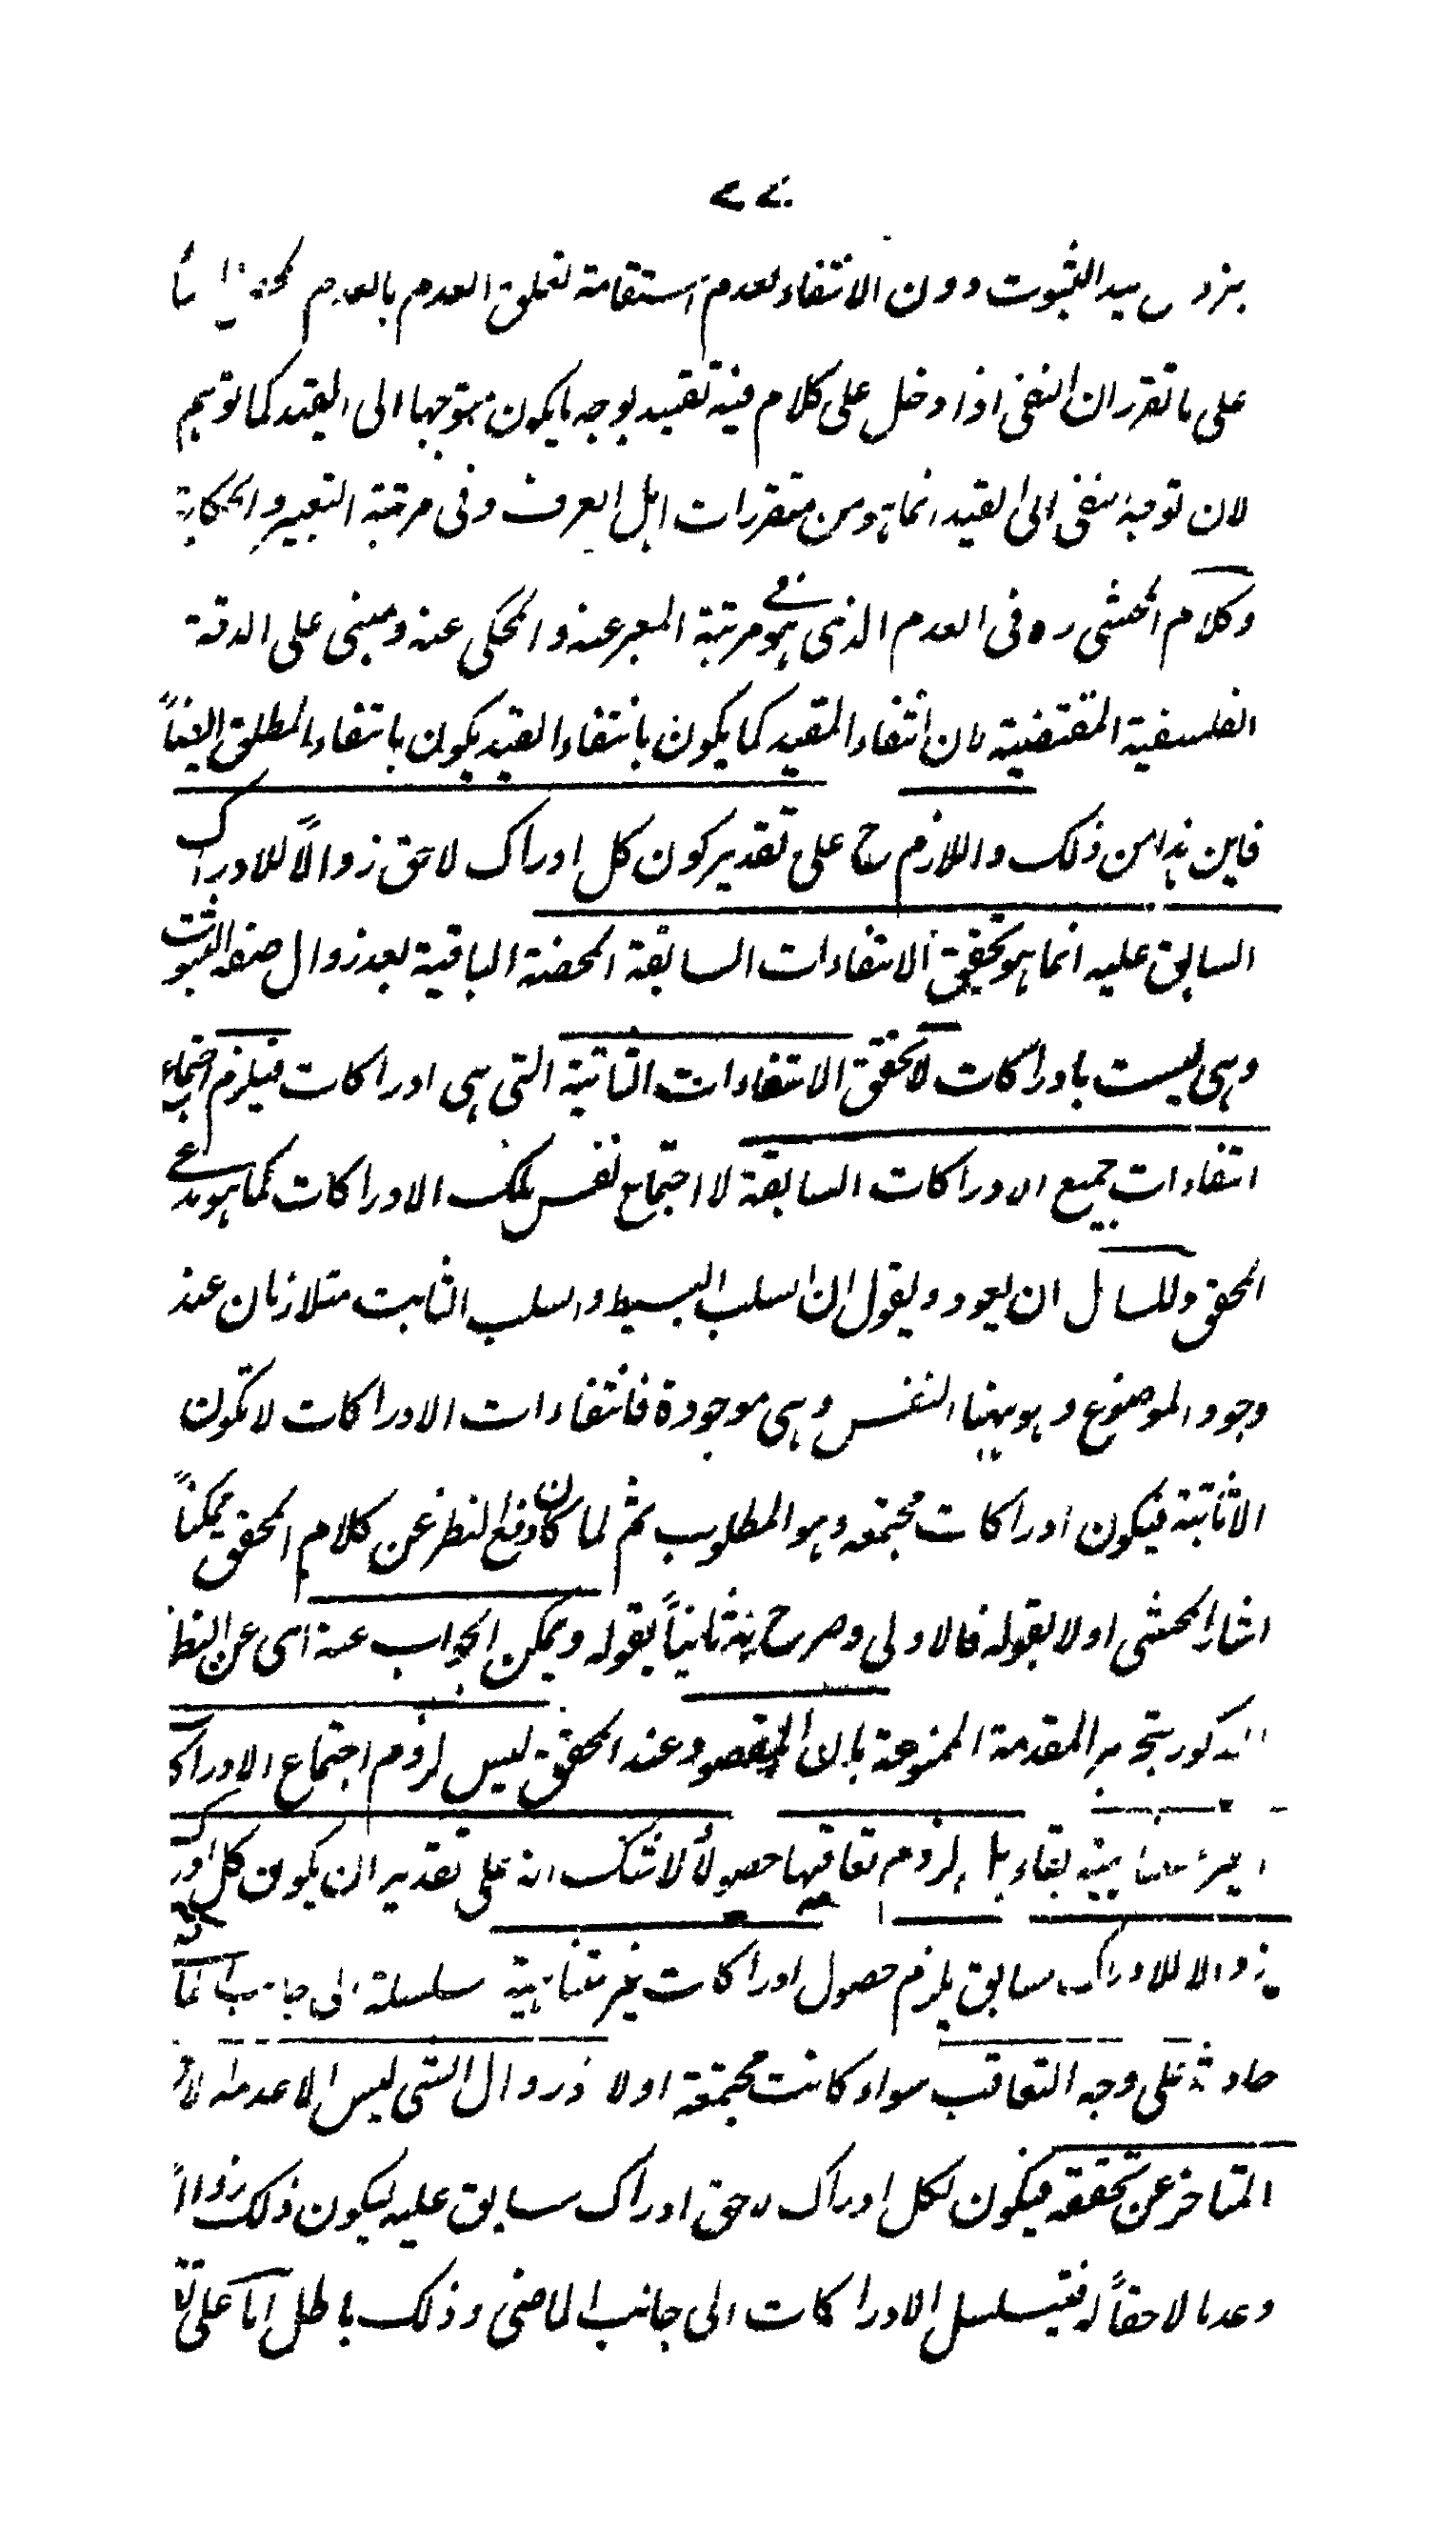 ٧٧
الثبوت دون الانتفاء لعدم استقامة تعلق العدم بالعدم
على ما تقرر ان النفى اذا دخل على كلام فيه تقييد بوجه ما يكون متوجها الى القيد كما توهم
لان توجه النفى الى القيد انما هو من متقررات اهل العرف وفى مرتبة التعبير والحكاية
وكلام المحشى ره فى العدم الذى هو فى مرتبة المعبر عنه والمحكى عنه ومبنى على الدقة
الفلسفية المقتضية لان انتفاء المقيد كما يكون بانتفاء القيد يكون بانتفاء المطلق ايضاً
فاين هذا من ذلك واللازم ح على تقدير كون كل ادراك لاحق زوالاً للادراك
السابق عليه انما هو تحقق الانتفاءات السابقة المحضة الباقية بعد زوال صفة الثبوت
وهى ليست بادراكات لا تحقق الانتفاءات الثابتة التى هى ادراكات فيلزم اجتماع
انتفاءات جميع الادراكات السابقة لا اجتماع نفس تلك الادراكات كما هو مدعى
المحقق وللسائل ان يعود ويقول ان السلب البسيط والسلب الثابت متلازمان عند
وجود الموضوع وهو ههنا النفس وهى موجودة فانتفاءات الادراكات لا تكون
الا ثابتة فيكون ادراكات مجتمعة وهو المطلوب ثم لما كان دفع النظر عن كلام المحقق ممكناً
اشار المحشى اولا بقوله فالاولى وصرح به ثانياً بقوله ويمكن الجواب عنه اى عن النظر
المذكور بتحرير المقدمة الممنوعة بان المقصود عند المحقق ليس لزوم اجتماع الادراكات
الغير المتناهية بقاء بل لزوم تعاقبها حصولاً لا شك انه على تقدير ان يكون كل ادراك
زوالا للادراك سابق يلزم حصول ادراكات غير متناهية سلسلة الى جانب الماضى
حادثة على وجه التعاقب سواء كانت مجتمعة اولا فزوال الشى ليس الا عدمه
المتاخر عن تحققه فيكون لكل ادراك لاحق ادراك سابق عليه ليكون ذلك زوالاً
وعدما لاحقاً له فتسلسل الادراكات الى جانب الماضى وذلك باطل اما على